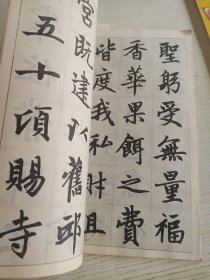 聖躬受無量福
香華果餌之費
皆度我私財且
宮既建以舊邸
五十頃賜寺